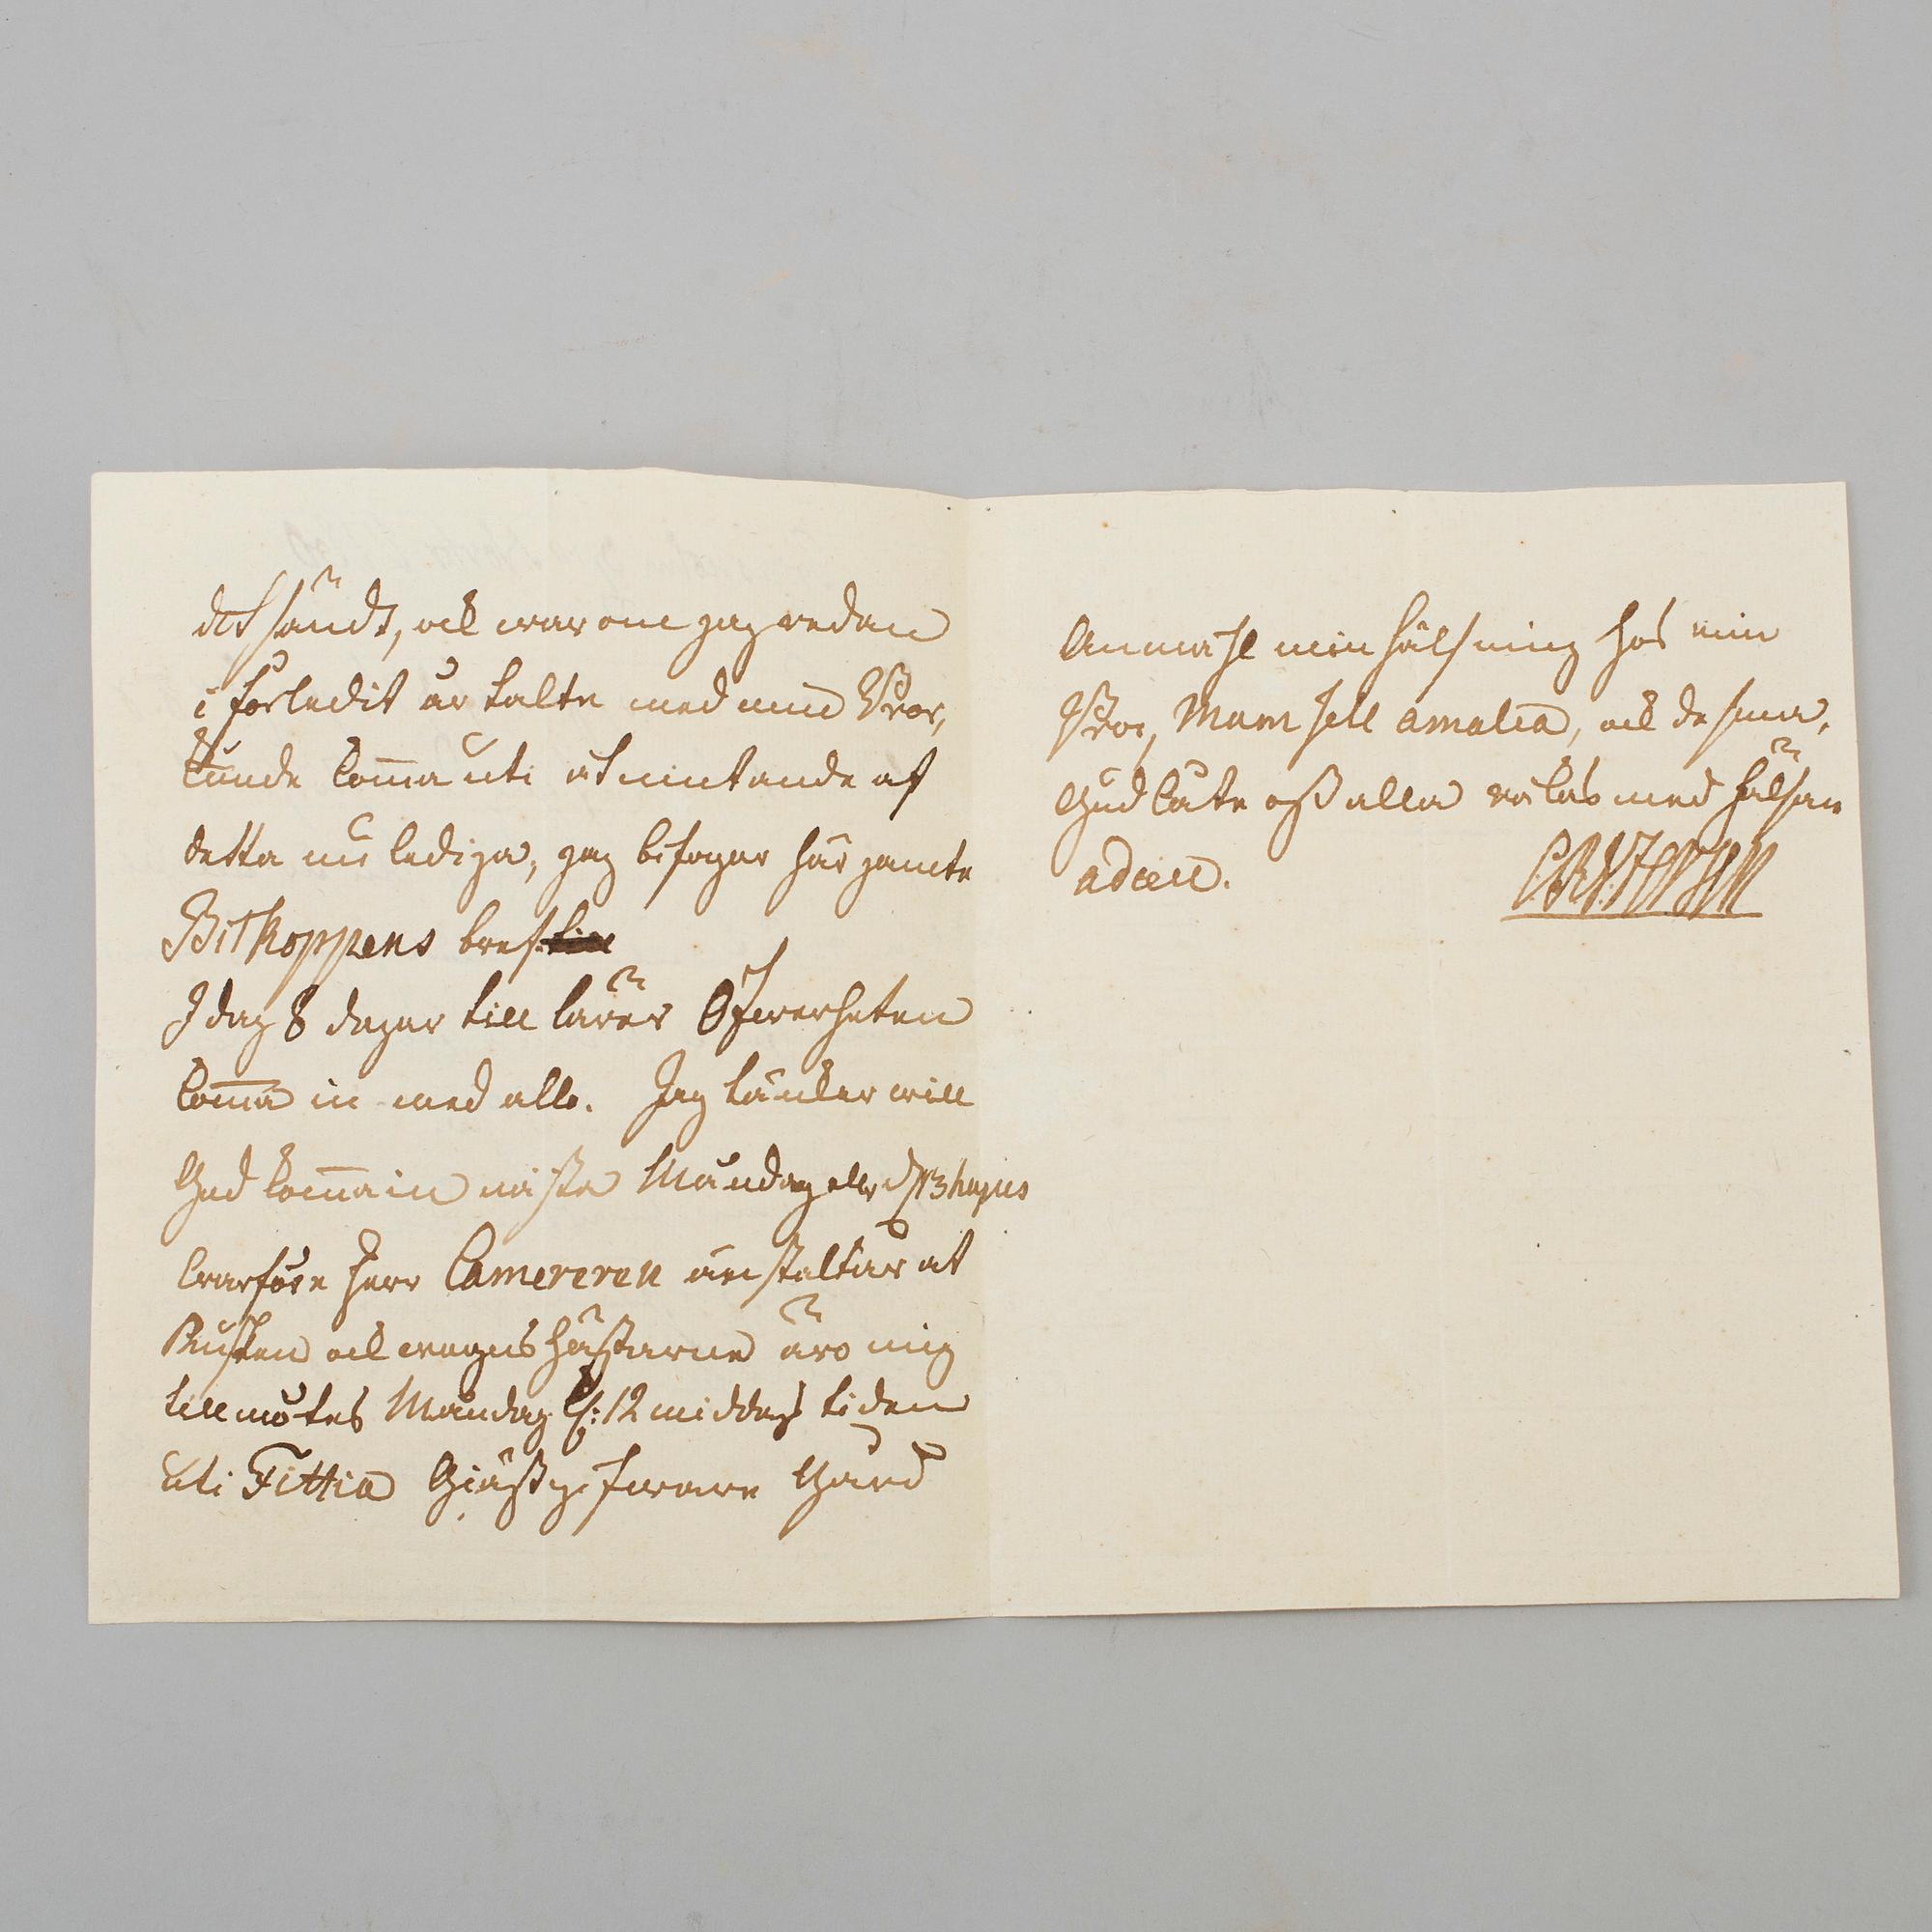 det händt, och war om jag redan
i förledit år talte med min Bror,
kunde komma uti åtniutande af
detta nu lediga, jag bifogar här jemte
Biskoppens bref.
I dag 8 dagar till lärer Öfwerheten
komma in med allo. Jag täncker will
Gud komma in nästa Måndag eller d 13 hujus
hwarföre Herr Camereren anstaltar at
Rusken och wagns hästarne äro mig
till mötes Måndag kl: 12 middags tiden
uti Fittia Giästgifware Gård
Anmähl min hälsning hos min
Bror, Mamsell Amalia, och de små,
Gud låte oss alla råkas med hälsan
adieu.